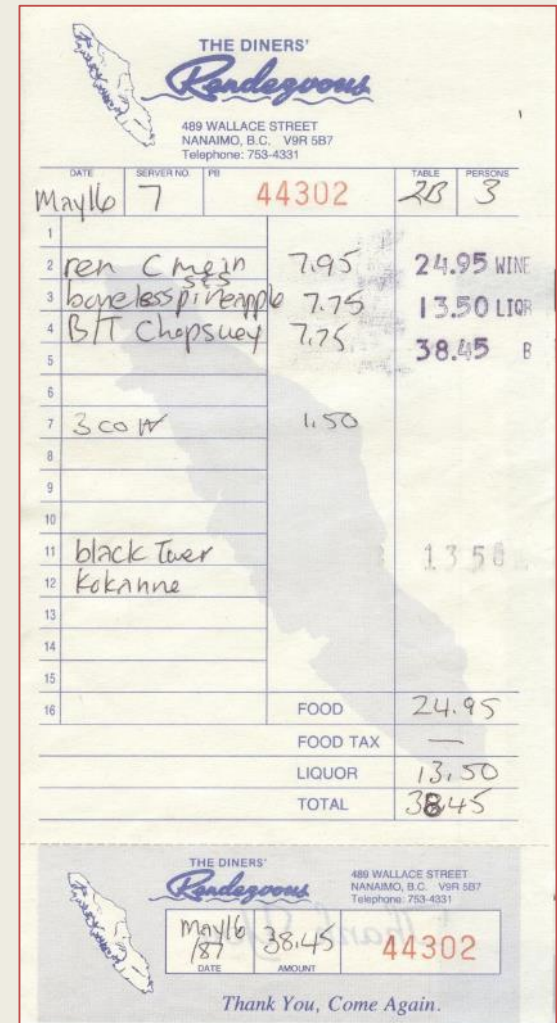 THE DINERS'
Rendezvous
489 WALLACE STREET
NANAIMO, B.C. V9R 5B7
Telephone: 753-4331
DATE SERVER NO. PB TABLE PERSONS
May 16 7 44302 2B 3
1
2 ren C mein 7.95 24.95 WINE
S&S
3 boneless pineapple 7.75 13.50 LIQR
4 B/T Chopsuey 7.75 38.45 B
5
6
7 3 co 1.50
8
9
10
11 black Tower 13 50
12 Kokanne
13
14
15
16 FOOD 24.95
FOOD TAX —
LIQUOR 13.50
TOTAL 38.45
THE DINERS'
Rendezvous
489 WALLACE STREET
NANAIMO, B.C. V9R 5B7
Telephone: 753-4331
May 16
/87 38.45 44302
DATE AMOUNT
Thank You, Come Again.